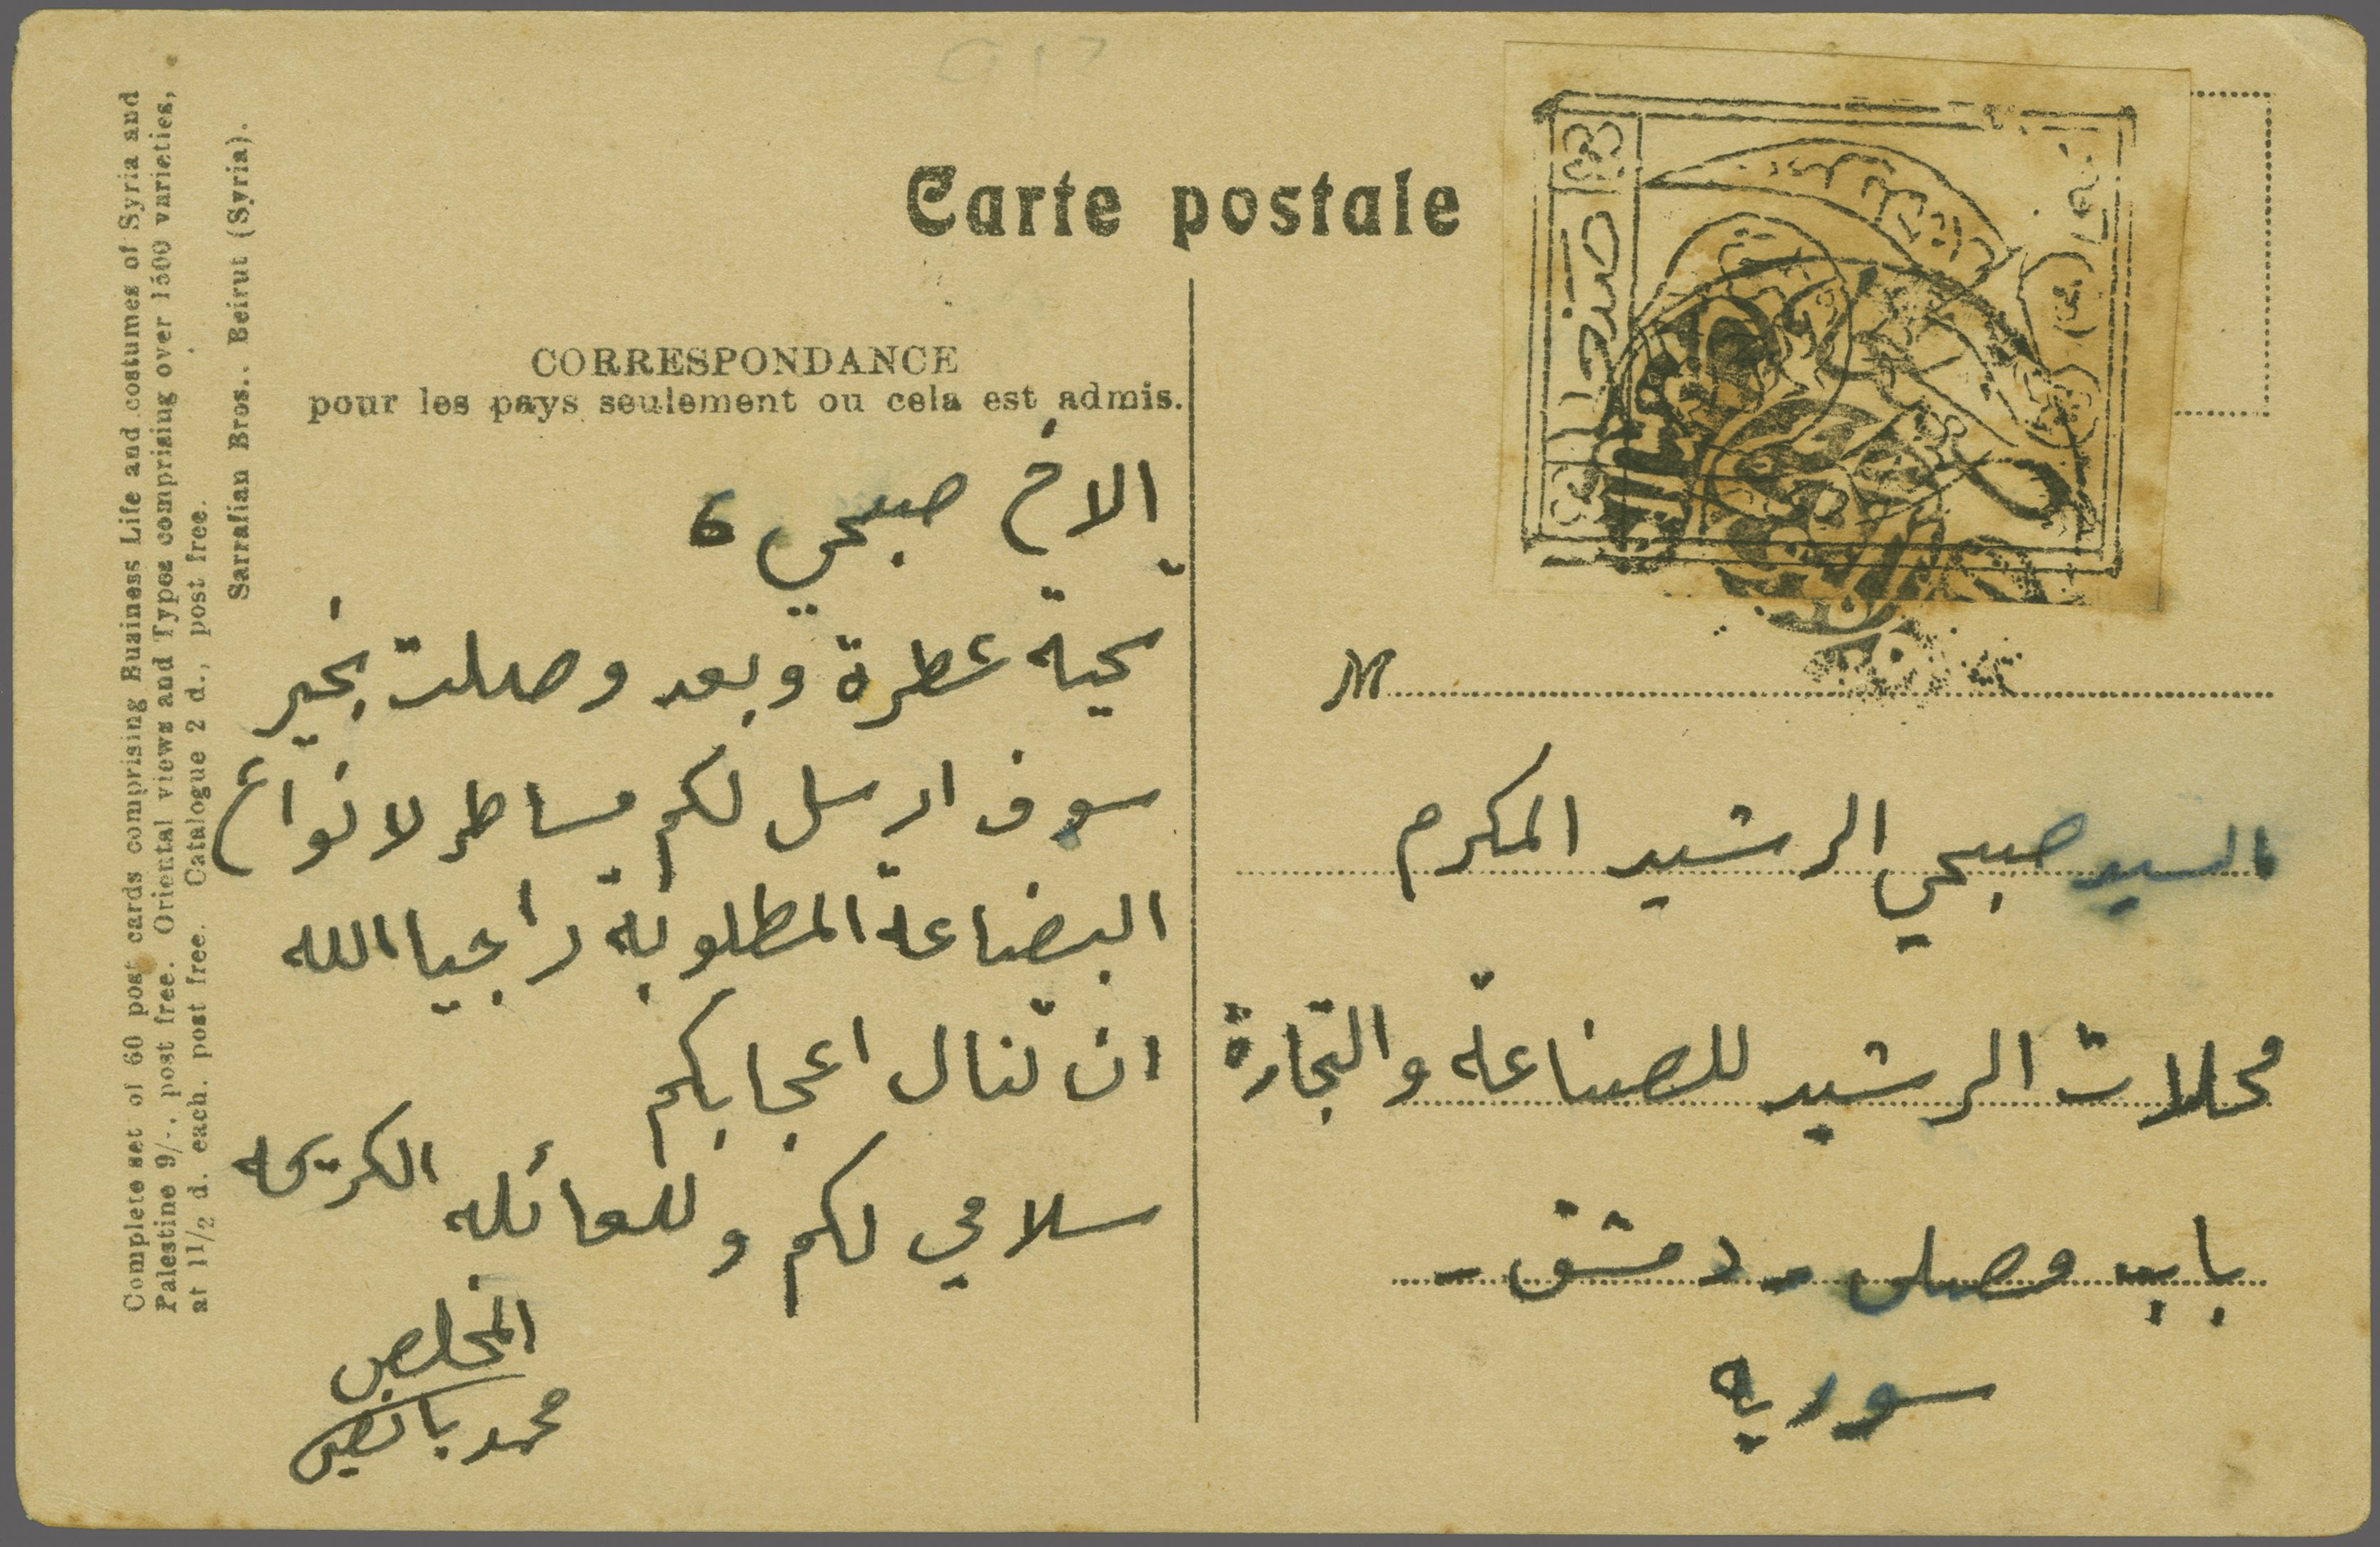 Carte postale
CORRESPONDANCE
pour les pays seulement ou cela est admis.
الاخ صبحي
تحية عطرة وبعد وصلت بخير
سوف ارسل لكم مساطر لانواع
البضاعة المطلوبة راجيا الله
ان تنال اعجابكم
سلامي لكم وللعائله الكريمه
المخلص
محمد
M
السيد صبحي الرشيد المكرم
محلات الرشيد للصناعة والتجارة
باب مصلى - دمشق -
سوريه
Complete set of 60 post cards comprising Business Life and costumes of Syria and
Palestine 9/-, post free. Oriental views and Types comprising over 1500 varieties,
at 1 1/2 d. each. post free. Catalogue 2 d., post free.
Sarrafian Bros.. Beirut (Syria).